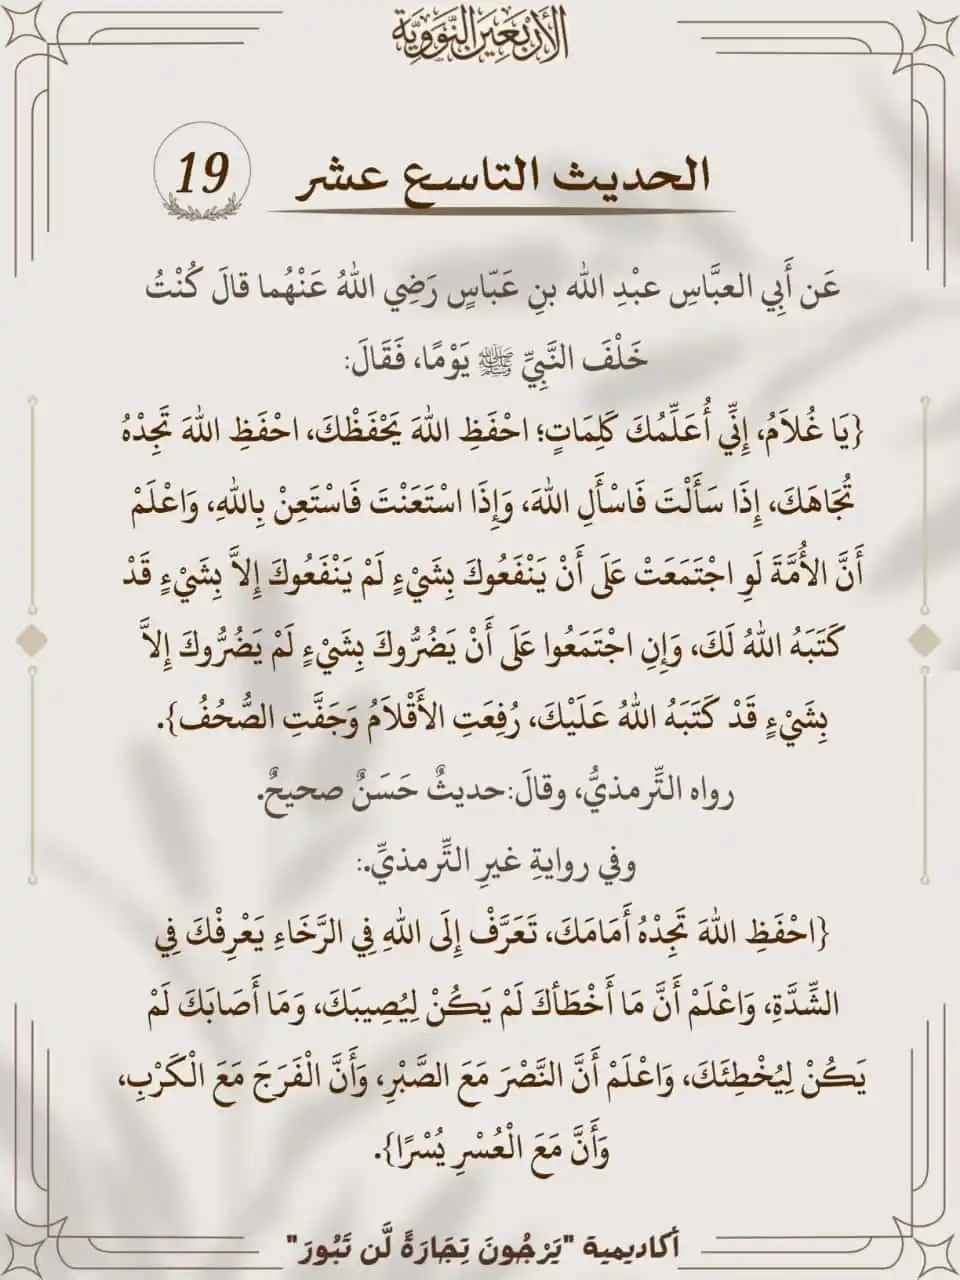 الأَرْبَعِين النَّوَوِيَّة
الحديث التاسع عشر
19
عَن أَبِي العبَّاسِ عبْدِ الله بنِ عَبّاسٍ رَضِي اللهُ عَنْهُما قالَ كُنْتُ
خَلْفَ النَّبِيِّ ﷺ يَوْمًا، فَقَالَ:
{يَا غُلاَمُ، إِنِّي أُعَلِّمُكَ كَلِمَاتٍ؛ احْفَظِ اللهَ يَحْفَظْكَ، احْفَظِ اللهَ تَجِدْهُ
تُجَاهَكَ، إِذَا سَأَلْتَ فَاسْأَلِ اللهَ، وَإِذَا اسْتَعَنْتَ فَاسْتَعِنْ بِاللهِ، وَاعْلَمْ
أَنَّ الأُمَّةَ لَوِ اجْتَمَعَتْ عَلَى أَنْ يَنْفَعُوكَ بِشَيْءٍ لَمْ يَنْفَعُوكَ إِلاَّ بِشَيْءٍ قَدْ
كَتَبَهُ اللهُ لَكَ، وَإِنِ اجْتَمَعُوا عَلَى أَنْ يَضُرُّوكَ بِشَيْءٍ لَمْ يَضُرُّوكَ إِلاَّ
بِشَيْءٍ قَدْ كَتَبَهُ اللهُ عَلَيْكَ، رُفِعَتِ الأَقْلاَمُ وَجَفَّتِ الصُّحُفُ}.
رواه التِّرمذيُّ، وقالَ:حديثٌ حَسَنٌ صحيحٌ.
وفي روايةِ غيرِ التِّرمذيِّ.:
{احْفَظِ اللهَ تَجِدْهُ أَمَامَكَ، تَعَرَّفْ إِلَى اللهِ فِي الرَّخَاءِ يَعْرِفْكَ فِي
الشِّدَّةِ، وَاعْلَمْ أَنَّ مَا أَخْطَأكَ لَمْ يَكُنْ لِيُصِيبَكَ، وَمَا أَصَابَكَ لَمْ
يَكُنْ لِيُخْطِئَكَ، وَاعْلَمْ أَنَّ النَّصْرَ مَعَ الصَّبْرِ، وَأَنَّ الْفَرَجَ مَعَ الْكَرْبِ،
وَأَنَّ مَعَ الْعُسْرِ يُسْرًا}.
أكاديمية "يَرْجُونَ تِجَارَةً لَّن تَبُورَ"